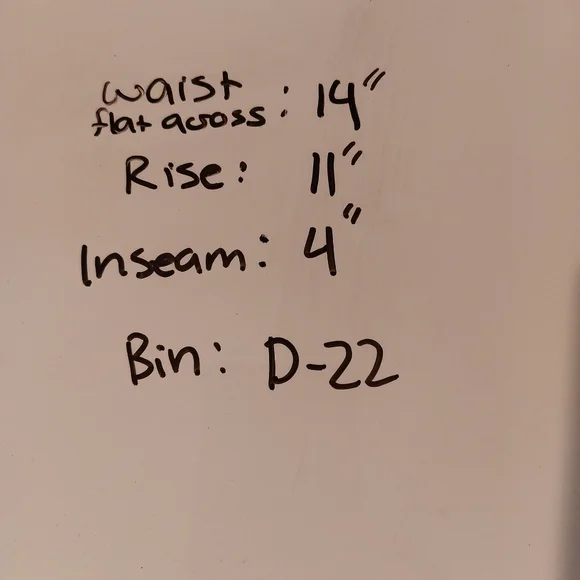 waist
flat across : 14"
Rise: 11"
Inseam: 4"
Bin: D-22